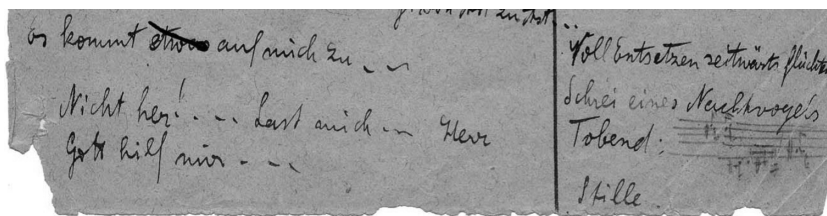 es kommt etwas auf mich zu ...
Nicht her! ... Last mich ... Herr
Gott hilf mir ...
Voll Entsetzen seitwärts flüchte
Schrei eines Nachtvogels
Tobend:
Stille.